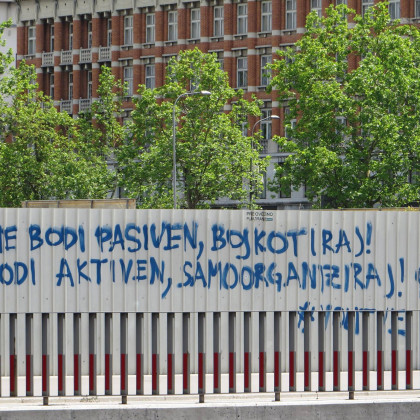 NE BODI PASIVEN, BOJKOTIRAJ!
BODI AKTIVEN, SAMOORGANIZIRAJ!